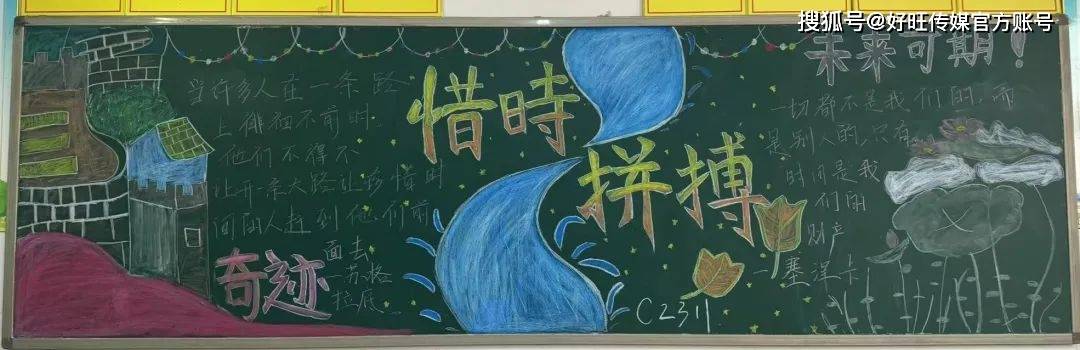 搜狐号@好旺传媒官方账号
未来可期！
惜時
拼搏
奇迹
当许多人在一条路
上徘徊不前时
他们不得不
让开一条大路让珍惜时
间的人赶到他们前
面去
一苏格
拉底
一切都不是我们的，而
是别人的，只有
时间是我
们的
财产
一塞涅卡
C2311